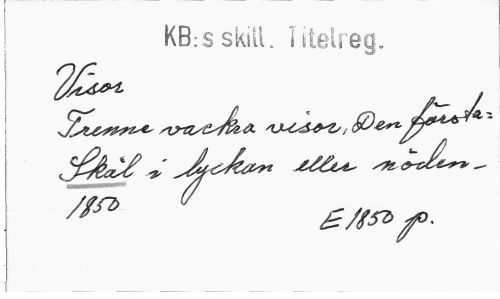 KB:s skill. Titelreg.
Visor
Trenne vackra visor, Den första=
Skål i lyckan eller nöden-
1850
E 1850 p.